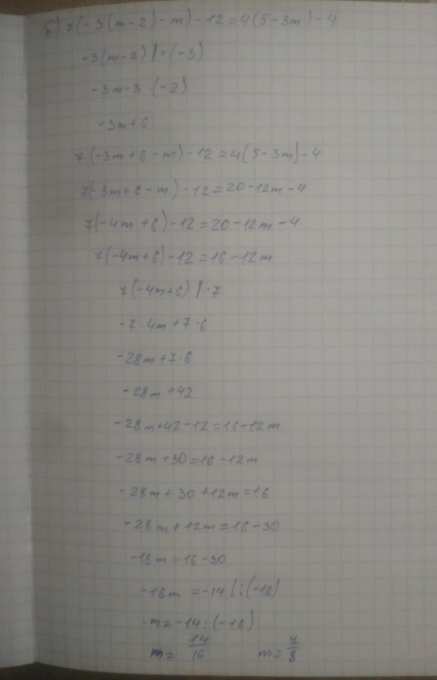 б) 7(-3(m-2)-m)-12=4(5-3m)-4
-3(m-2) |·(-3)
-3m-3·(-2)
-3m+6
7·(-3m+6-m)-12=4(5-3m)-4
7(-3m+6-m)-12=20-12m-4
7(-4m+6)-12=20-12m-4
7(-4m+6)-12=16-12m
7(-4m+6) |·7
-7·4m+7·6
-28m+7·6
-28m+42
-28m+42-12=16-12m
-28m+30=16-12m
-28m+30+12m=16
-28m+12m=16-30
-16m=16-30
-16m=-14 |:(-16)
m=-14:(-16)
m=14/16 m=7/8